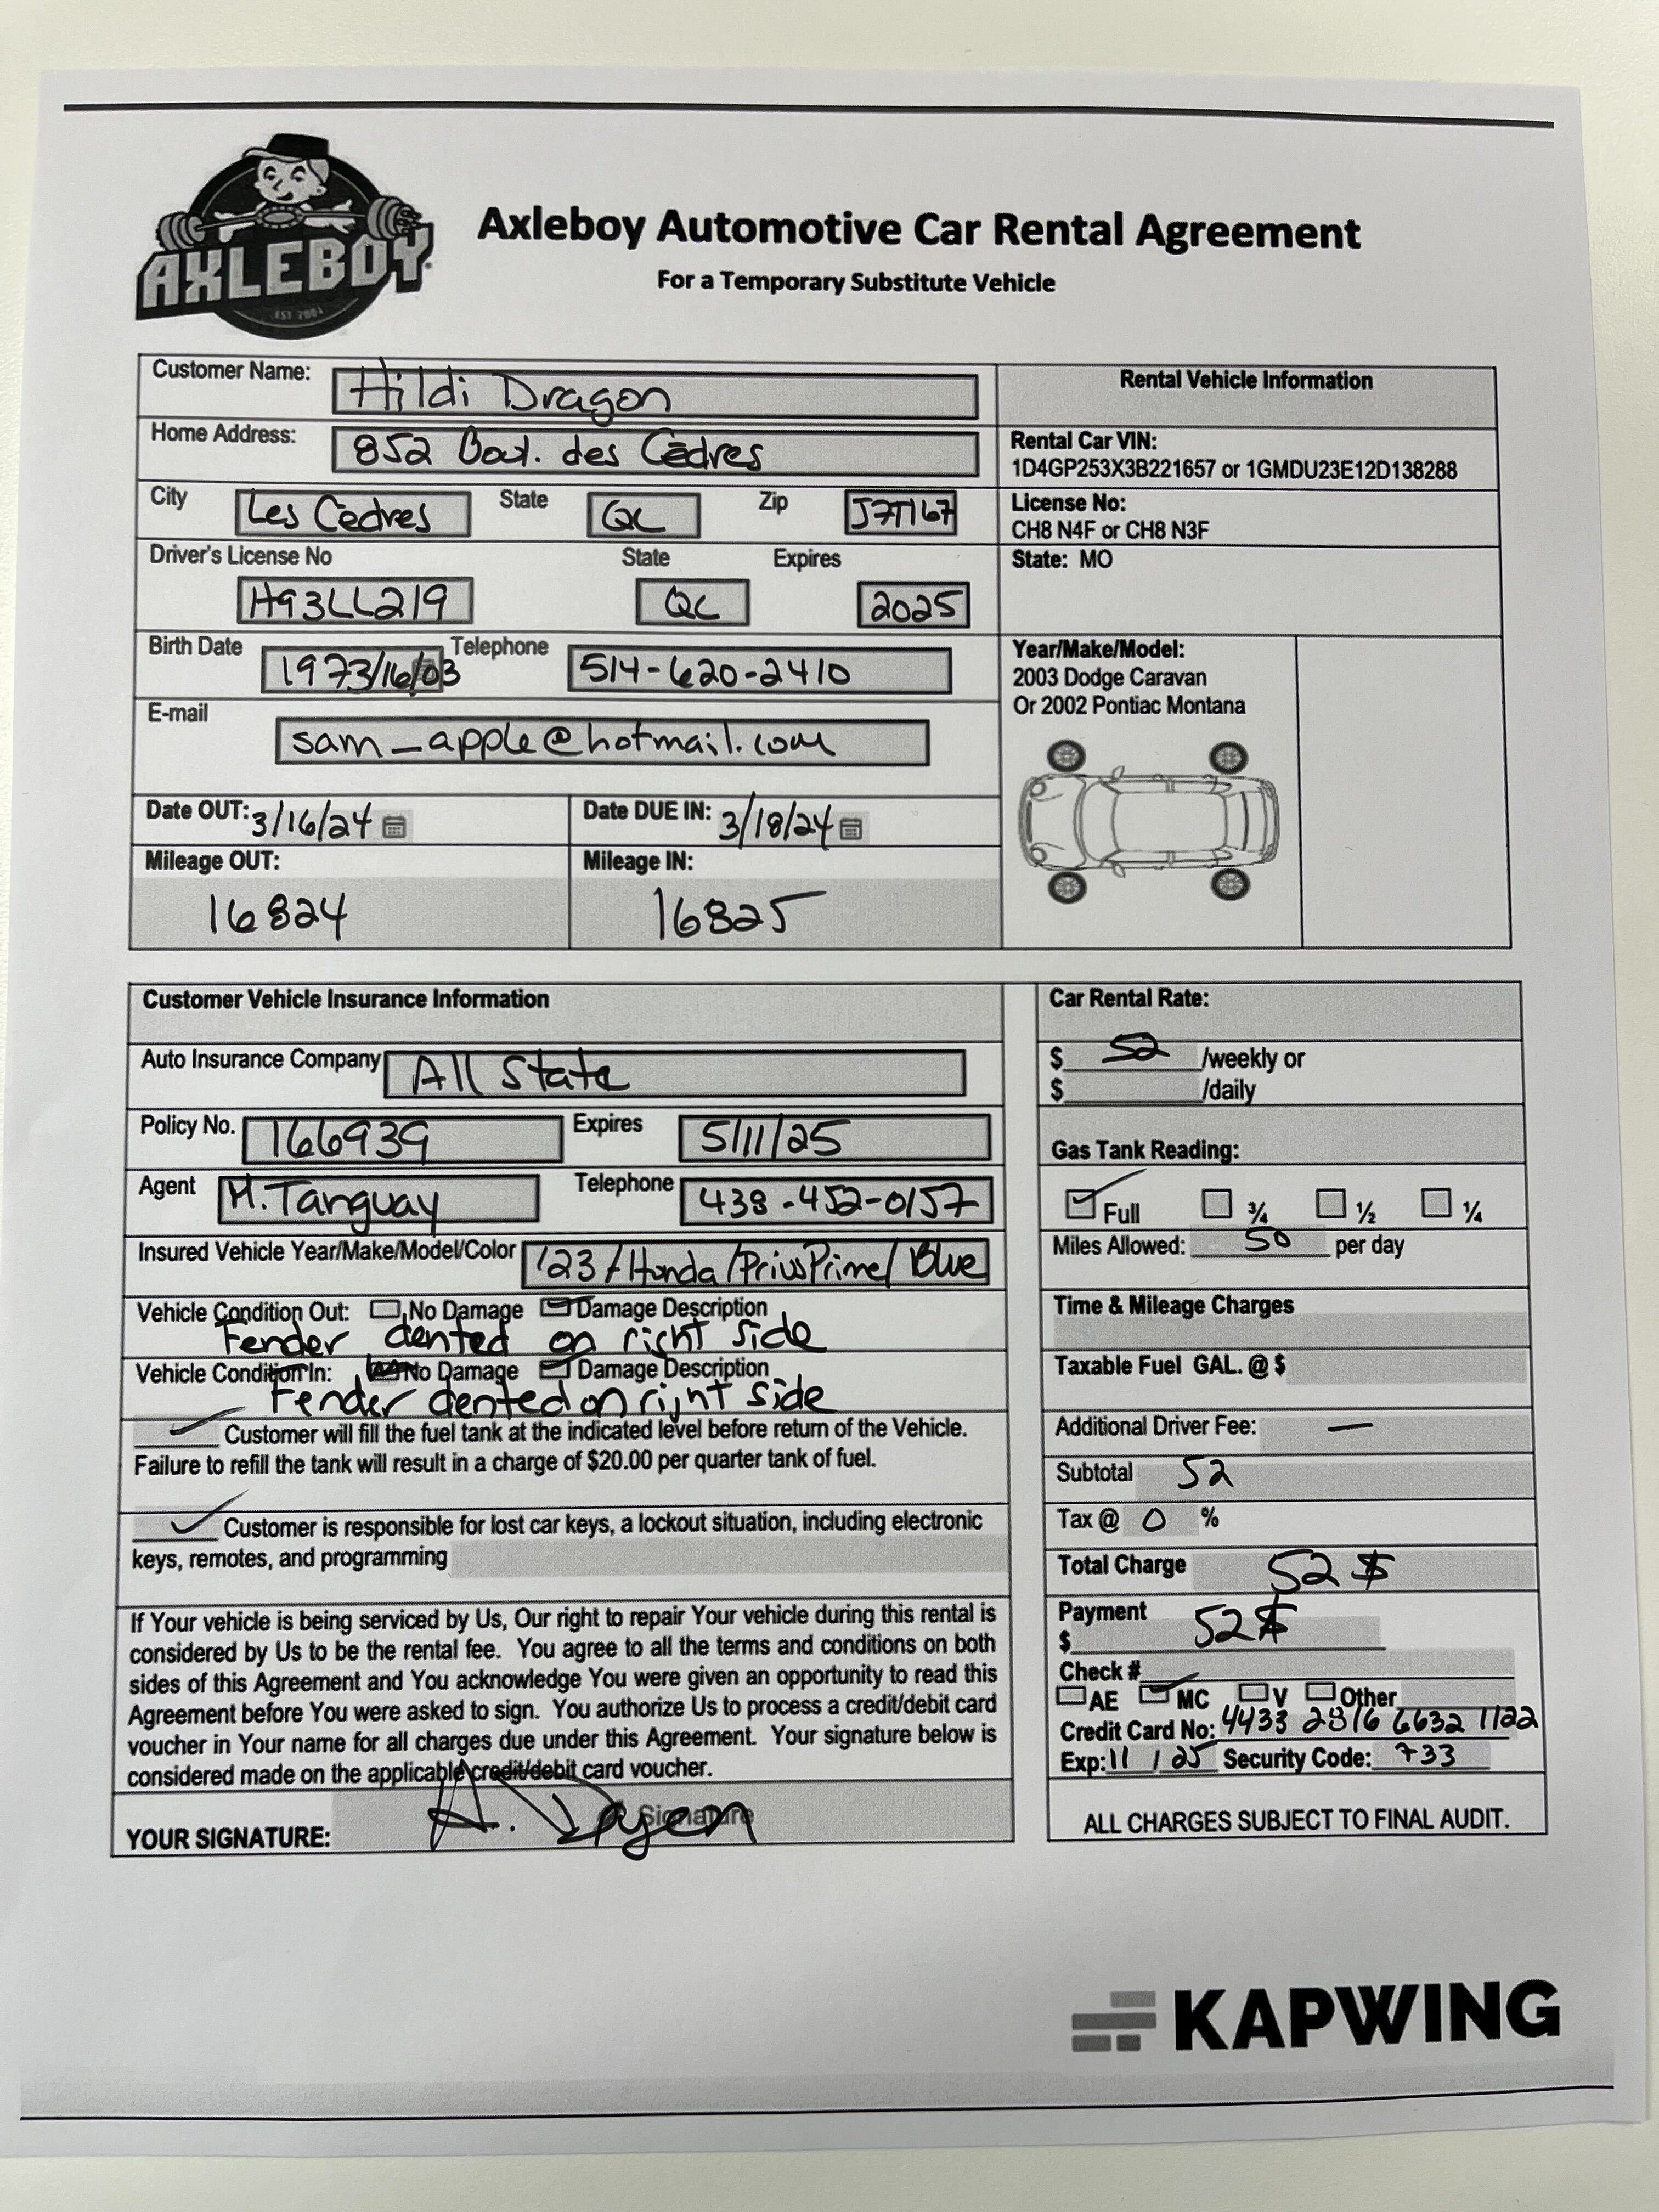 AXLEBOY
EST 2004
Axleboy Automotive Car Rental Agreement
For a Temporary Substitute Vehicle
Customer Name: Hildi Dragon
Home Address: 852 Boul. des Cèdres
City Les Cèdres State QC Zip J7T167
Driver's License No State Expires
H93LL219 QC 2025
Birth Date 1973/16/03 Telephone 514-620-2410
E-mail
sam_apple@hotmail.com
Date OUT: 3/16/24 Date DUE IN: 3/18/24
Mileage OUT: Mileage IN:
16824 16825
Rental Vehicle Information
Rental Car VIN:
1D4GP253X3B221657 or 1GMDU23E12D138288
License No:
CH8 N4F or CH8 N3F
State: MO
Year/Make/Model:
2003 Dodge Caravan
Or 2002 Pontiac Montana
Customer Vehicle Insurance Information
Auto Insurance Company All State
Policy No. 166939 Expires 5/11/25
Agent M. Tanguay Telephone 438-452-0157
Insured Vehicle Year/Make/Model/Color '23/Honda/Prius Prime/Blue
Vehicle Condition Out: No Damage Damage Description
Fender dented on right side
Vehicle Condition In: No Damage Damage Description
Fender dented on right side
Customer will fill the fuel tank at the indicated level before return of the Vehicle.
Failure to refill the tank will result in a charge of $20.00 per quarter tank of fuel.
Customer is responsible for lost car keys, a lockout situation, including electronic
keys, remotes, and programming
If Your vehicle is being serviced by Us, Our right to repair Your vehicle during this rental is
considered by Us to be the rental fee. You agree to all the terms and conditions on both
sides of this Agreement and You acknowledge You were given an opportunity to read this
Agreement before You were asked to sign. You authorize Us to process a credit/debit card
voucher in Your name for all charges due under this Agreement. Your signature below is
considered made on the applicable credit/debit card voucher.
YOUR SIGNATURE: Signature
Car Rental Rate:
$ 52 /weekly or
$ /daily
Gas Tank Reading:
Full ¾ ½ ¼
Miles Allowed: 50 per day
Time & Mileage Charges
Taxable Fuel GAL. @ $
Additional Driver Fee: —
Subtotal 52
Tax @ 0 %
Total Charge 52 $
Payment
$ 52$
Check #
AE MC V Other
Credit Card No: 4433 2816 6632 1122
Exp: 11 / 25 Security Code: 733
ALL CHARGES SUBJECT TO FINAL AUDIT.
KAPWING